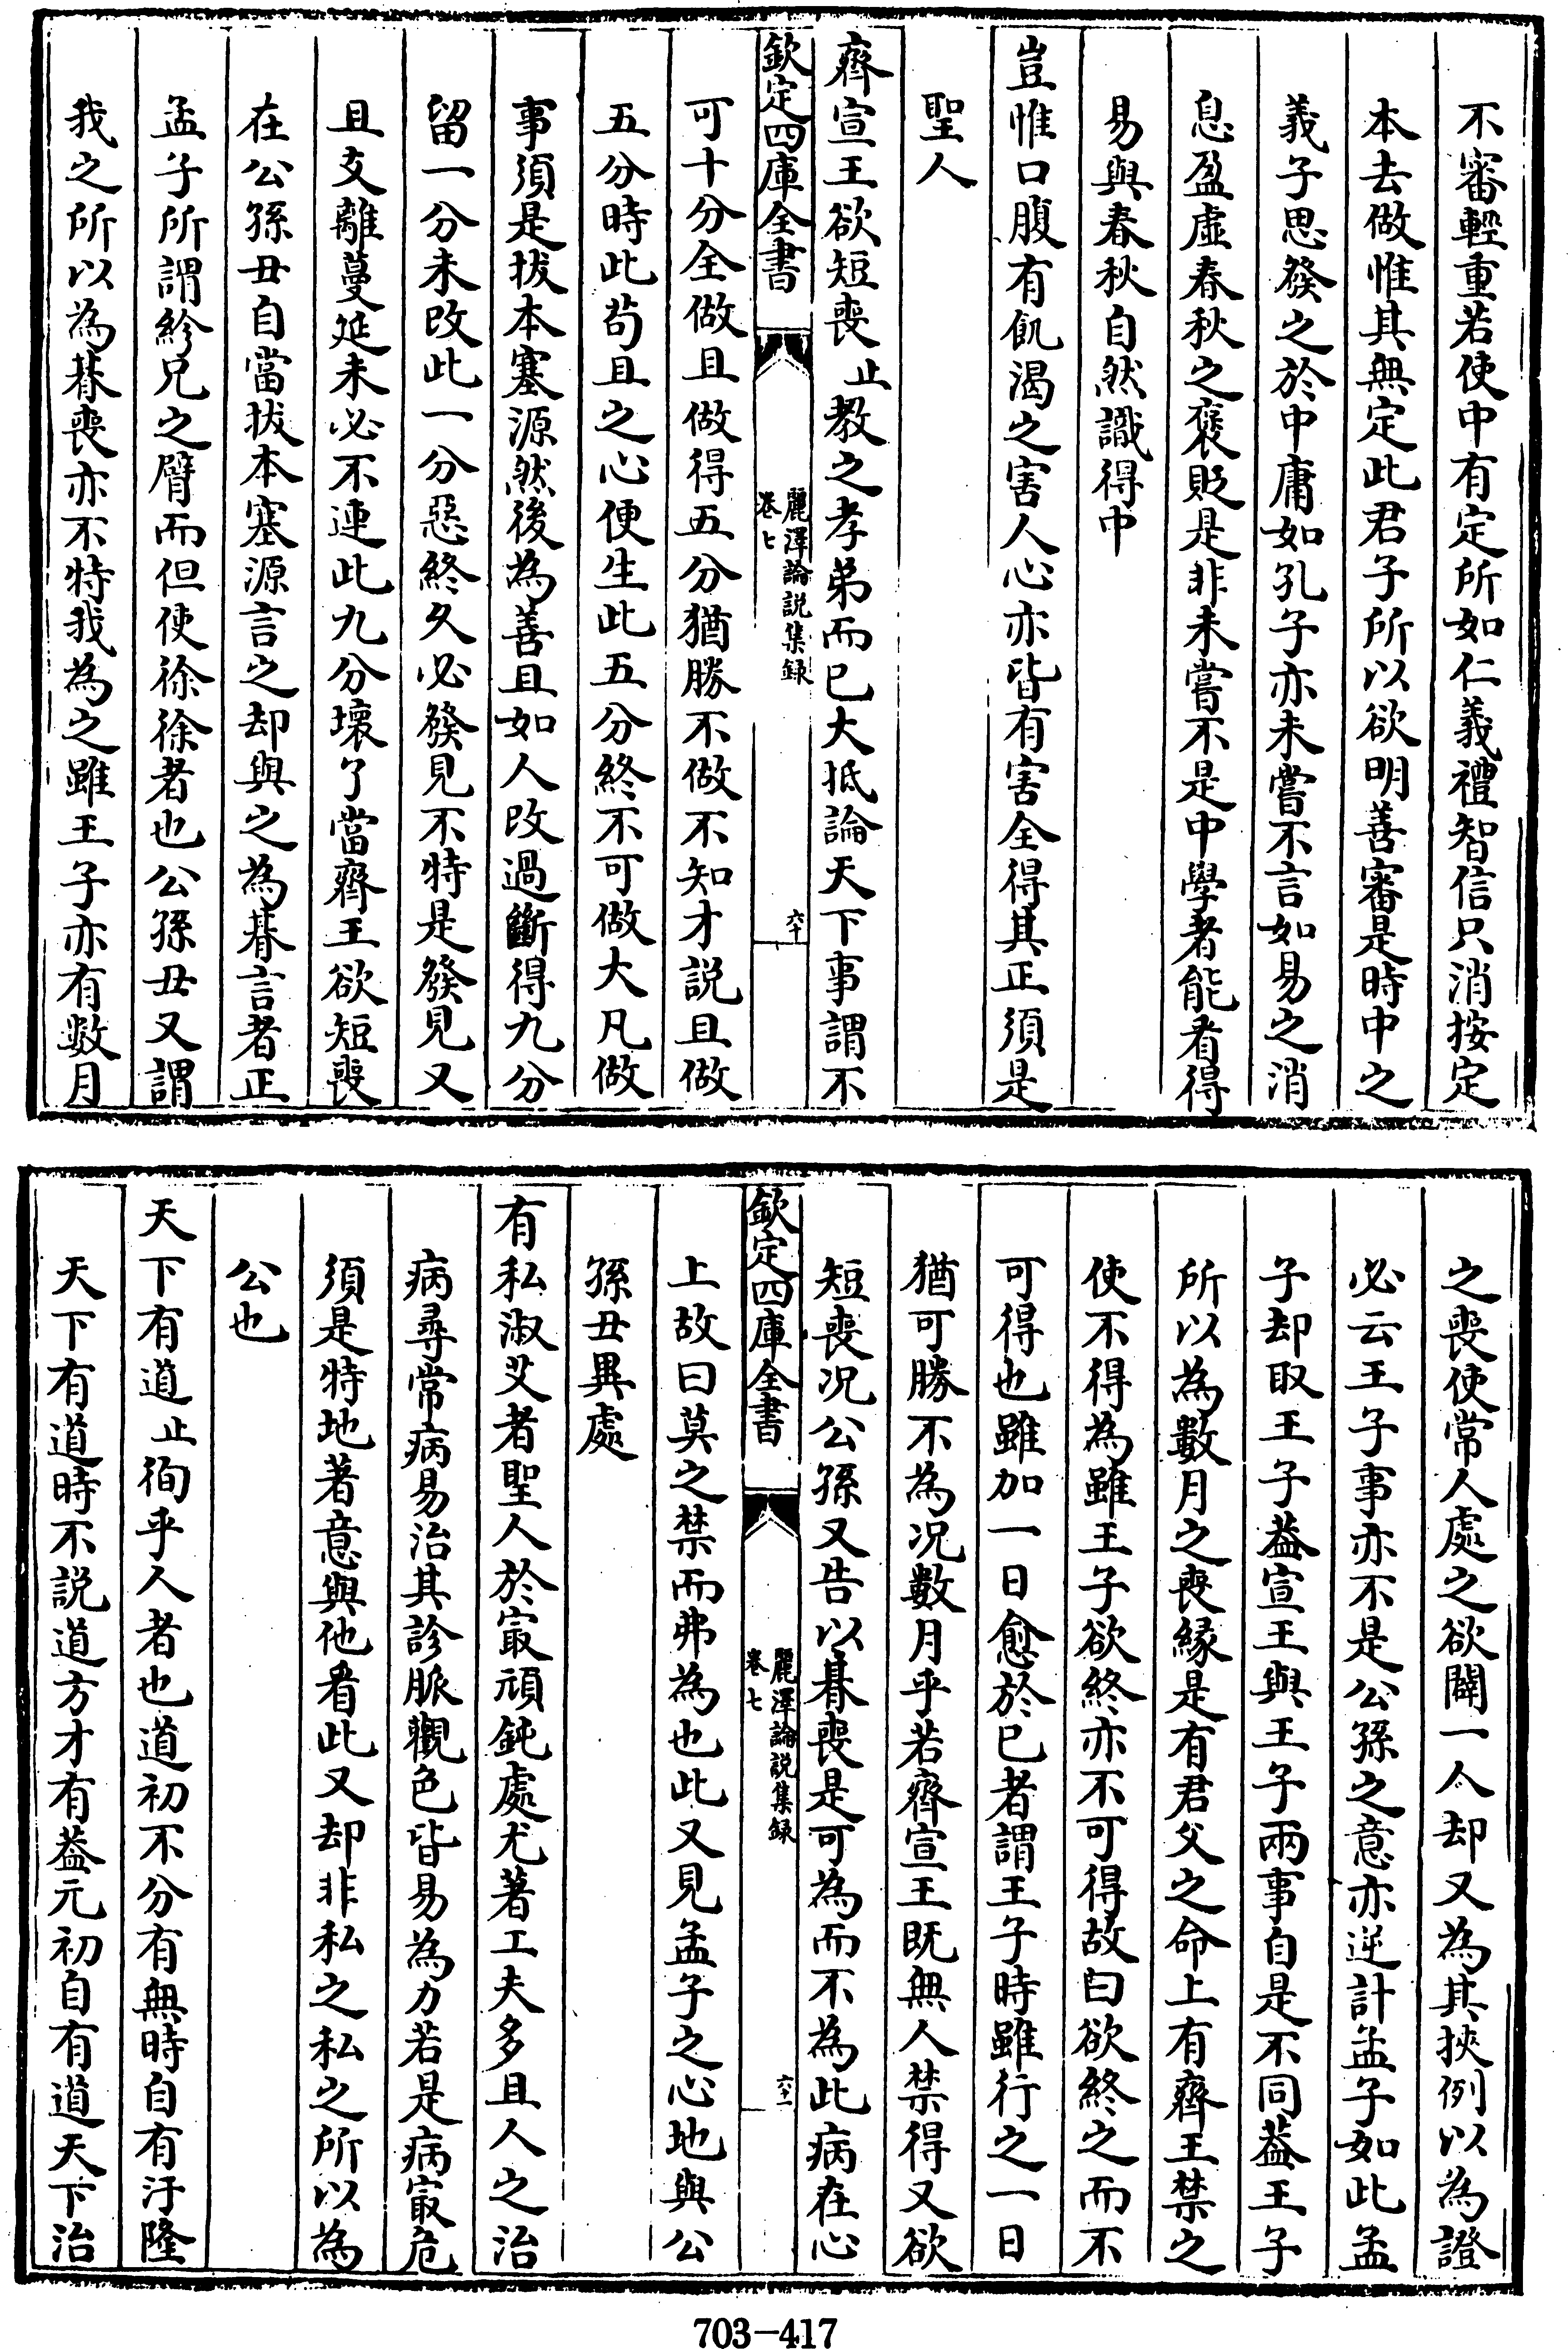 不審輕重若使中有定所如仁義禮智信只消按定
本去做惟其無定此君子所以欲明善審是時中之
義子思發之於中庸如孔子亦未嘗不言如易之消
息盈虛春秋之褒貶是非未嘗不是中學者能看得
易與春秋自然識得中
豈惟口腹有飢渴之害人心亦皆有害全得其正須是
聖人
齊宣王欲短喪止教之孝弟而已大抵論天下事謂不
欽定四庫全書
麗澤論説集録
卷七
六十
可十分全做且做得五分猶勝不做不知才説且做
五分時此苟且之心便生此五分終不可做大凡做
事須是拔本塞源然後為善且如人改過斷得九分
留一分未改此一分惡終久必發見不特是發見又
且支離蔓延未必不連此九分壞了當齊王欲短喪
在公孫丑自當拔本塞源言之却與之為朞言者正
孟子所謂紾兄之臂而但使徐徐者也公孫丑又謂
我之所以為朞喪亦不特我為之雖王子亦有數月
之喪使常人處之欲闢一人却又為其挾例以為證
必云王子事亦不是公孫之意亦逆計孟子如此孟
子却取王子葢宣王與王子兩事自是不同葢王子
所以為數月之喪縁是有君父之命上有齊王禁之
使不得為雖王子欲終亦不可得故曰欲終之而不
可得也雖加一日愈於已者謂王子時雖行之一日
猶可勝不為况數月乎若齊宣王既無人禁得又欲
短喪况公孫又告以朞喪是可為而不為此病在心
欽定四庫全書
麗澤論説集録
卷七
六十一
上故曰莫之禁而弗為也此又見孟子之心地與公
孫丑異處
有私淑艾者聖人於㝡頑鈍處尤著工夫多且人之治
病尋常病易治其診脈觀色皆易為力若是病㝡危
須是特地著意與他看此又却非私之私之所以為
公也
天下有道止徇乎人者也道初不分有無時自有汙隆
天下有道時不説道方才有葢元初自有道天下治
703-417